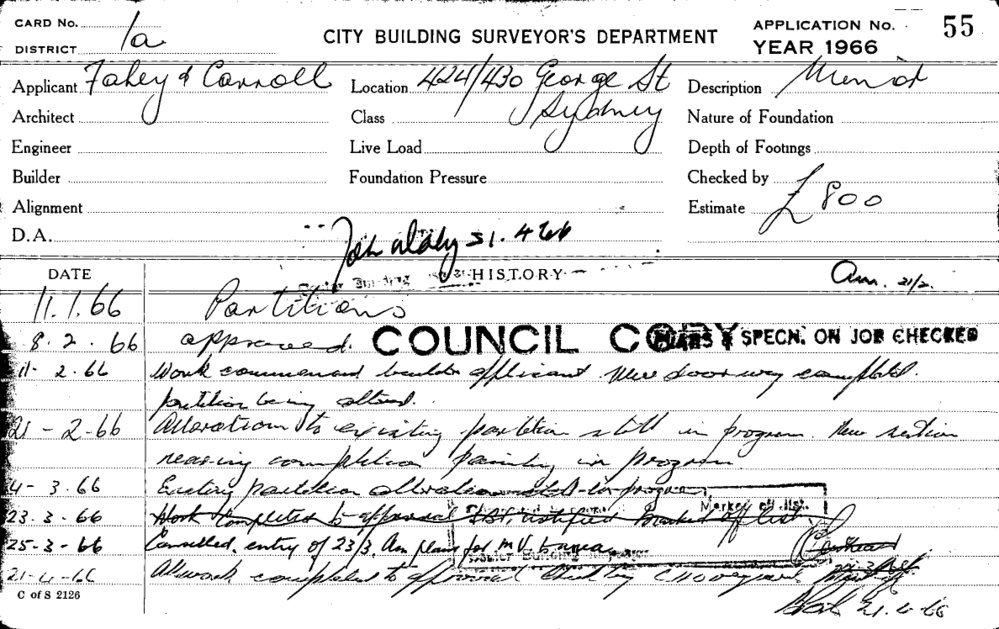 CARD No.
DISTRICT 1a
CITY BUILDING SURVEYOR'S DEPARTMENT
APPLICATION No. 55
YEAR 1966
Applicant Fahey & Carroll
Location 424/430 George St
Sydney
Description
Architect
Class
Nature of Foundation
Engineer
Live Load
Depth of Footings
Builder
Foundation Pressure
Checked by
Alignment
Estimate £800
D.A.
DATE
HISTORY
Am. 21/2.
11.1.66 Partitions
8.2.66 approved.
COUNCIL COPY
PLANS & SPECN. ON JOB CHECKED
11.2.66 Work commenced builder applicant. New doorway completed.
partition being altered.
21-2-66 Alterations to existing partition still in program. New section
nearing completion painting in program.
4-3.66 Existing partition alterations still in progress
Marked off list
23.3.66 Work completed to approval notified Marked off list
25-3-66 Cancelled, entry of 23/3, Am plans for
21-4-66 All work completed to approval
21.4.66
C of S 2126